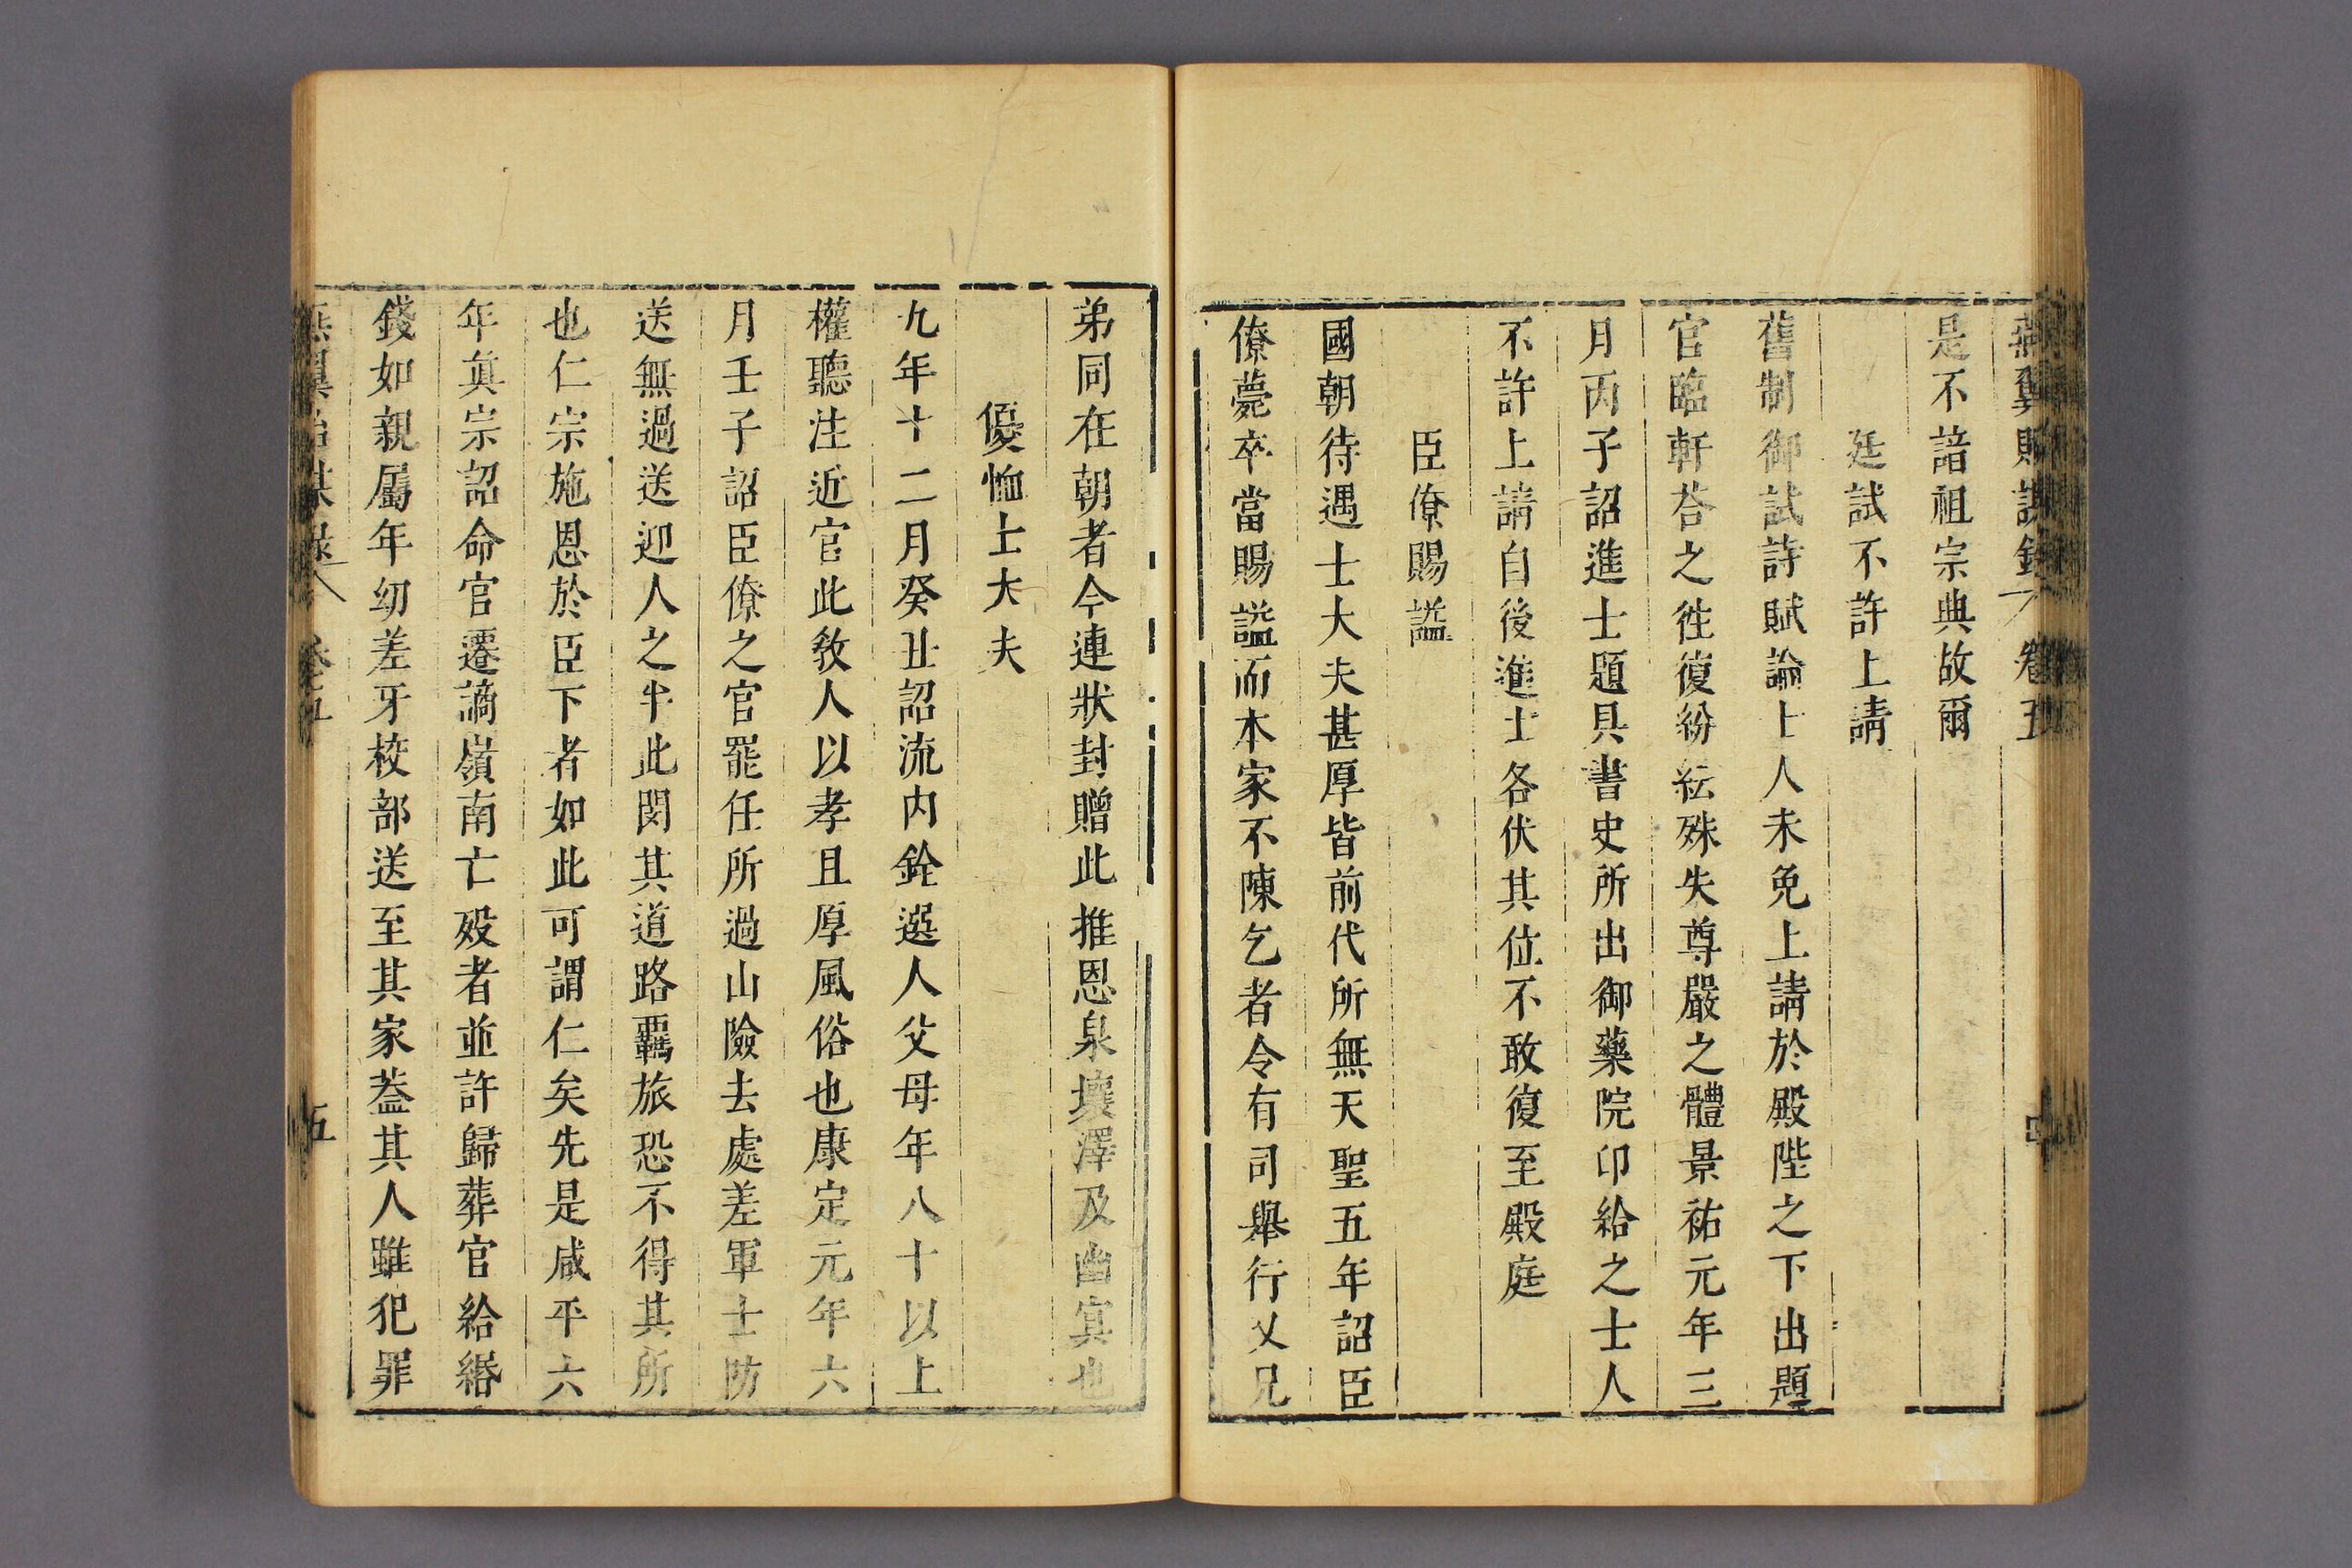 燕翼貽謀錄 卷五
是不諳祖宗典故爾
廷試不許上請
舊制御試詩賦論士人未免上請於殿陛之下出題
官臨軒荅之徃復紛紜殊失尊嚴之體景祐元年三
月丙子詔進士題具書史所出御藥院印給之士人
不許上請自後進士各伏其位不敢復至殿庭
臣僚賜謚
國朝待遇士大夫甚厚皆前代所無天聖五年詔臣
僚薨卒當賜謚而本家不陳乞者令有司舉行父兄
弟同在朝者令連狀封贈此推恩泉壤澤及幽冥也
優恤士大夫
九年十二月癸丑詔流内銓選人父母年八十以上
權聽注近官此敎人以孝且厚風俗也康定元年六
月壬子詔臣僚之官罷任所過山險去處差軍士防
送無過送迎人之半此閔其道路羈旅恐不得其所
也仁宗施恩於臣下者如此可謂仁矣先是咸平六
年眞宗詔命官遷謫嶺南亡歿者並許歸葬官給緡
錢如親屬年幼差牙校部送至其家葢其人雖犯罪
燕翼貽謀錄 卷五 五